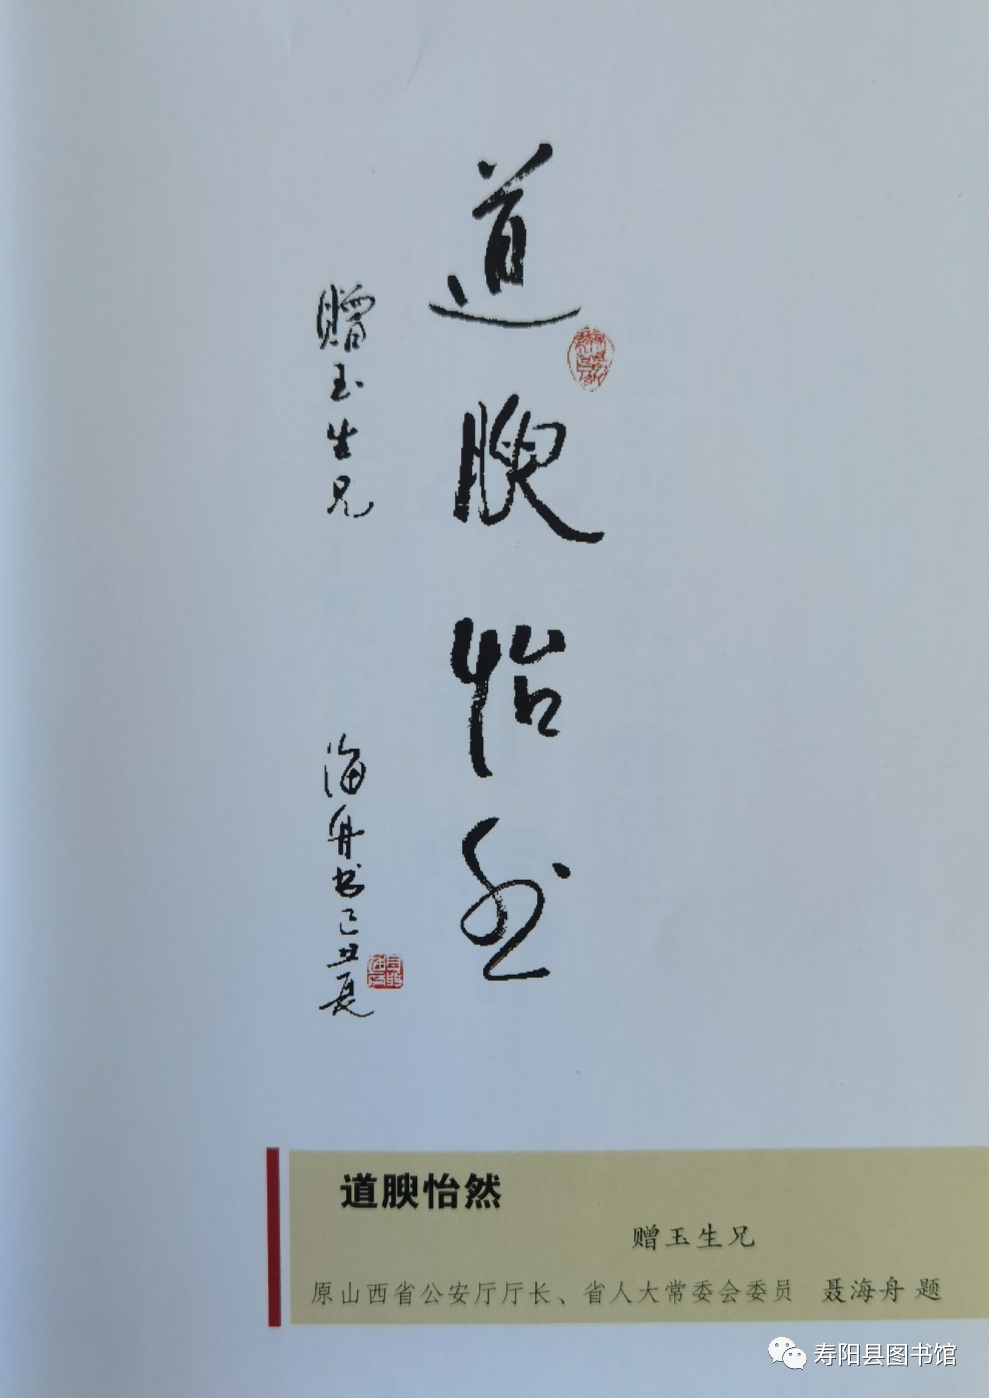 道腴怡然
赠玉生兄
海舟书己丑夏
道腴怡然
赠玉生兄
原山西省公安厅厅长、省人大常委会委员 聂海舟 题
寿阳县图书馆